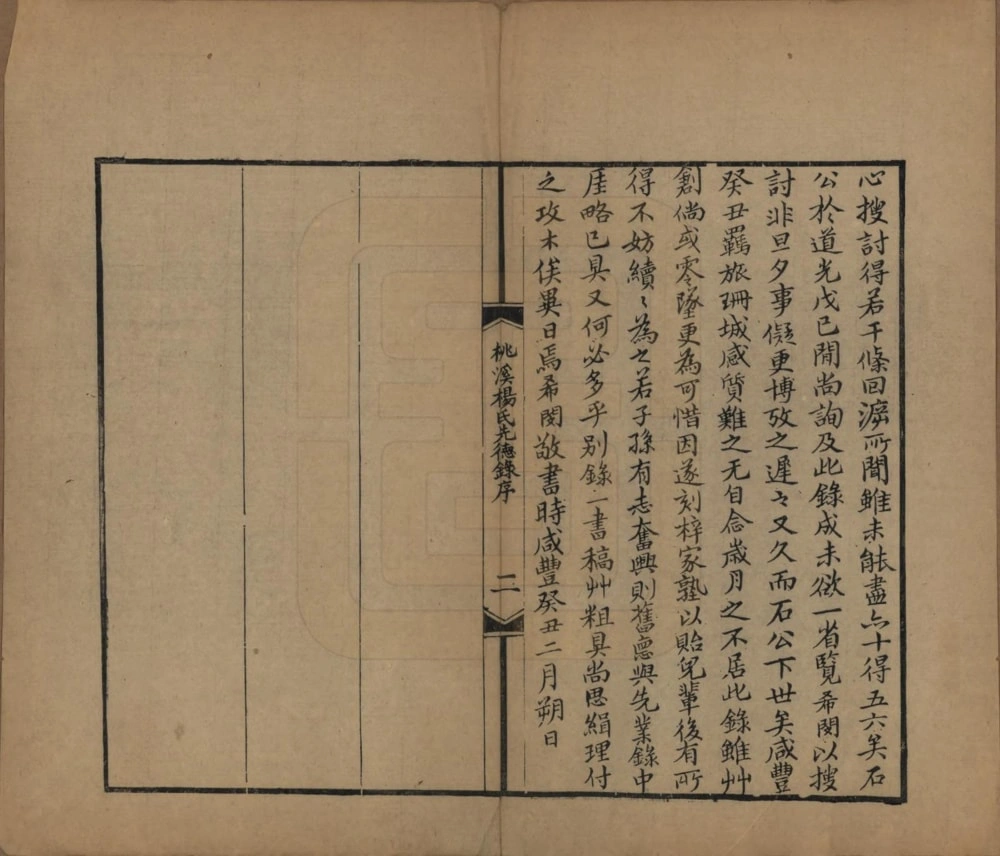 心搜討得若干條回溯所聞雖未能盡亦十得五六矣石
公於道光戊己閒尚詢及此錄成未欲一省覽希閔以搜
討非旦夕事儗更博攷之遲〻又久而石公下世矣咸豐
癸丑羈旅珊城感質難之无自念歲月之不居此錄雖艸
創倘或零墜更為可惜因遂刻梓家塾以貽兒輩後有所
得不妨續〻為之若子孫有志奮興則舊悳與先業錄中
厓略已具又何必多乎別錄一書稿艸粗具尚思緝理付
之攻木俟異日焉希閔敬書時咸豐癸丑二月朔日
桃溪楊氏先德錄序
二